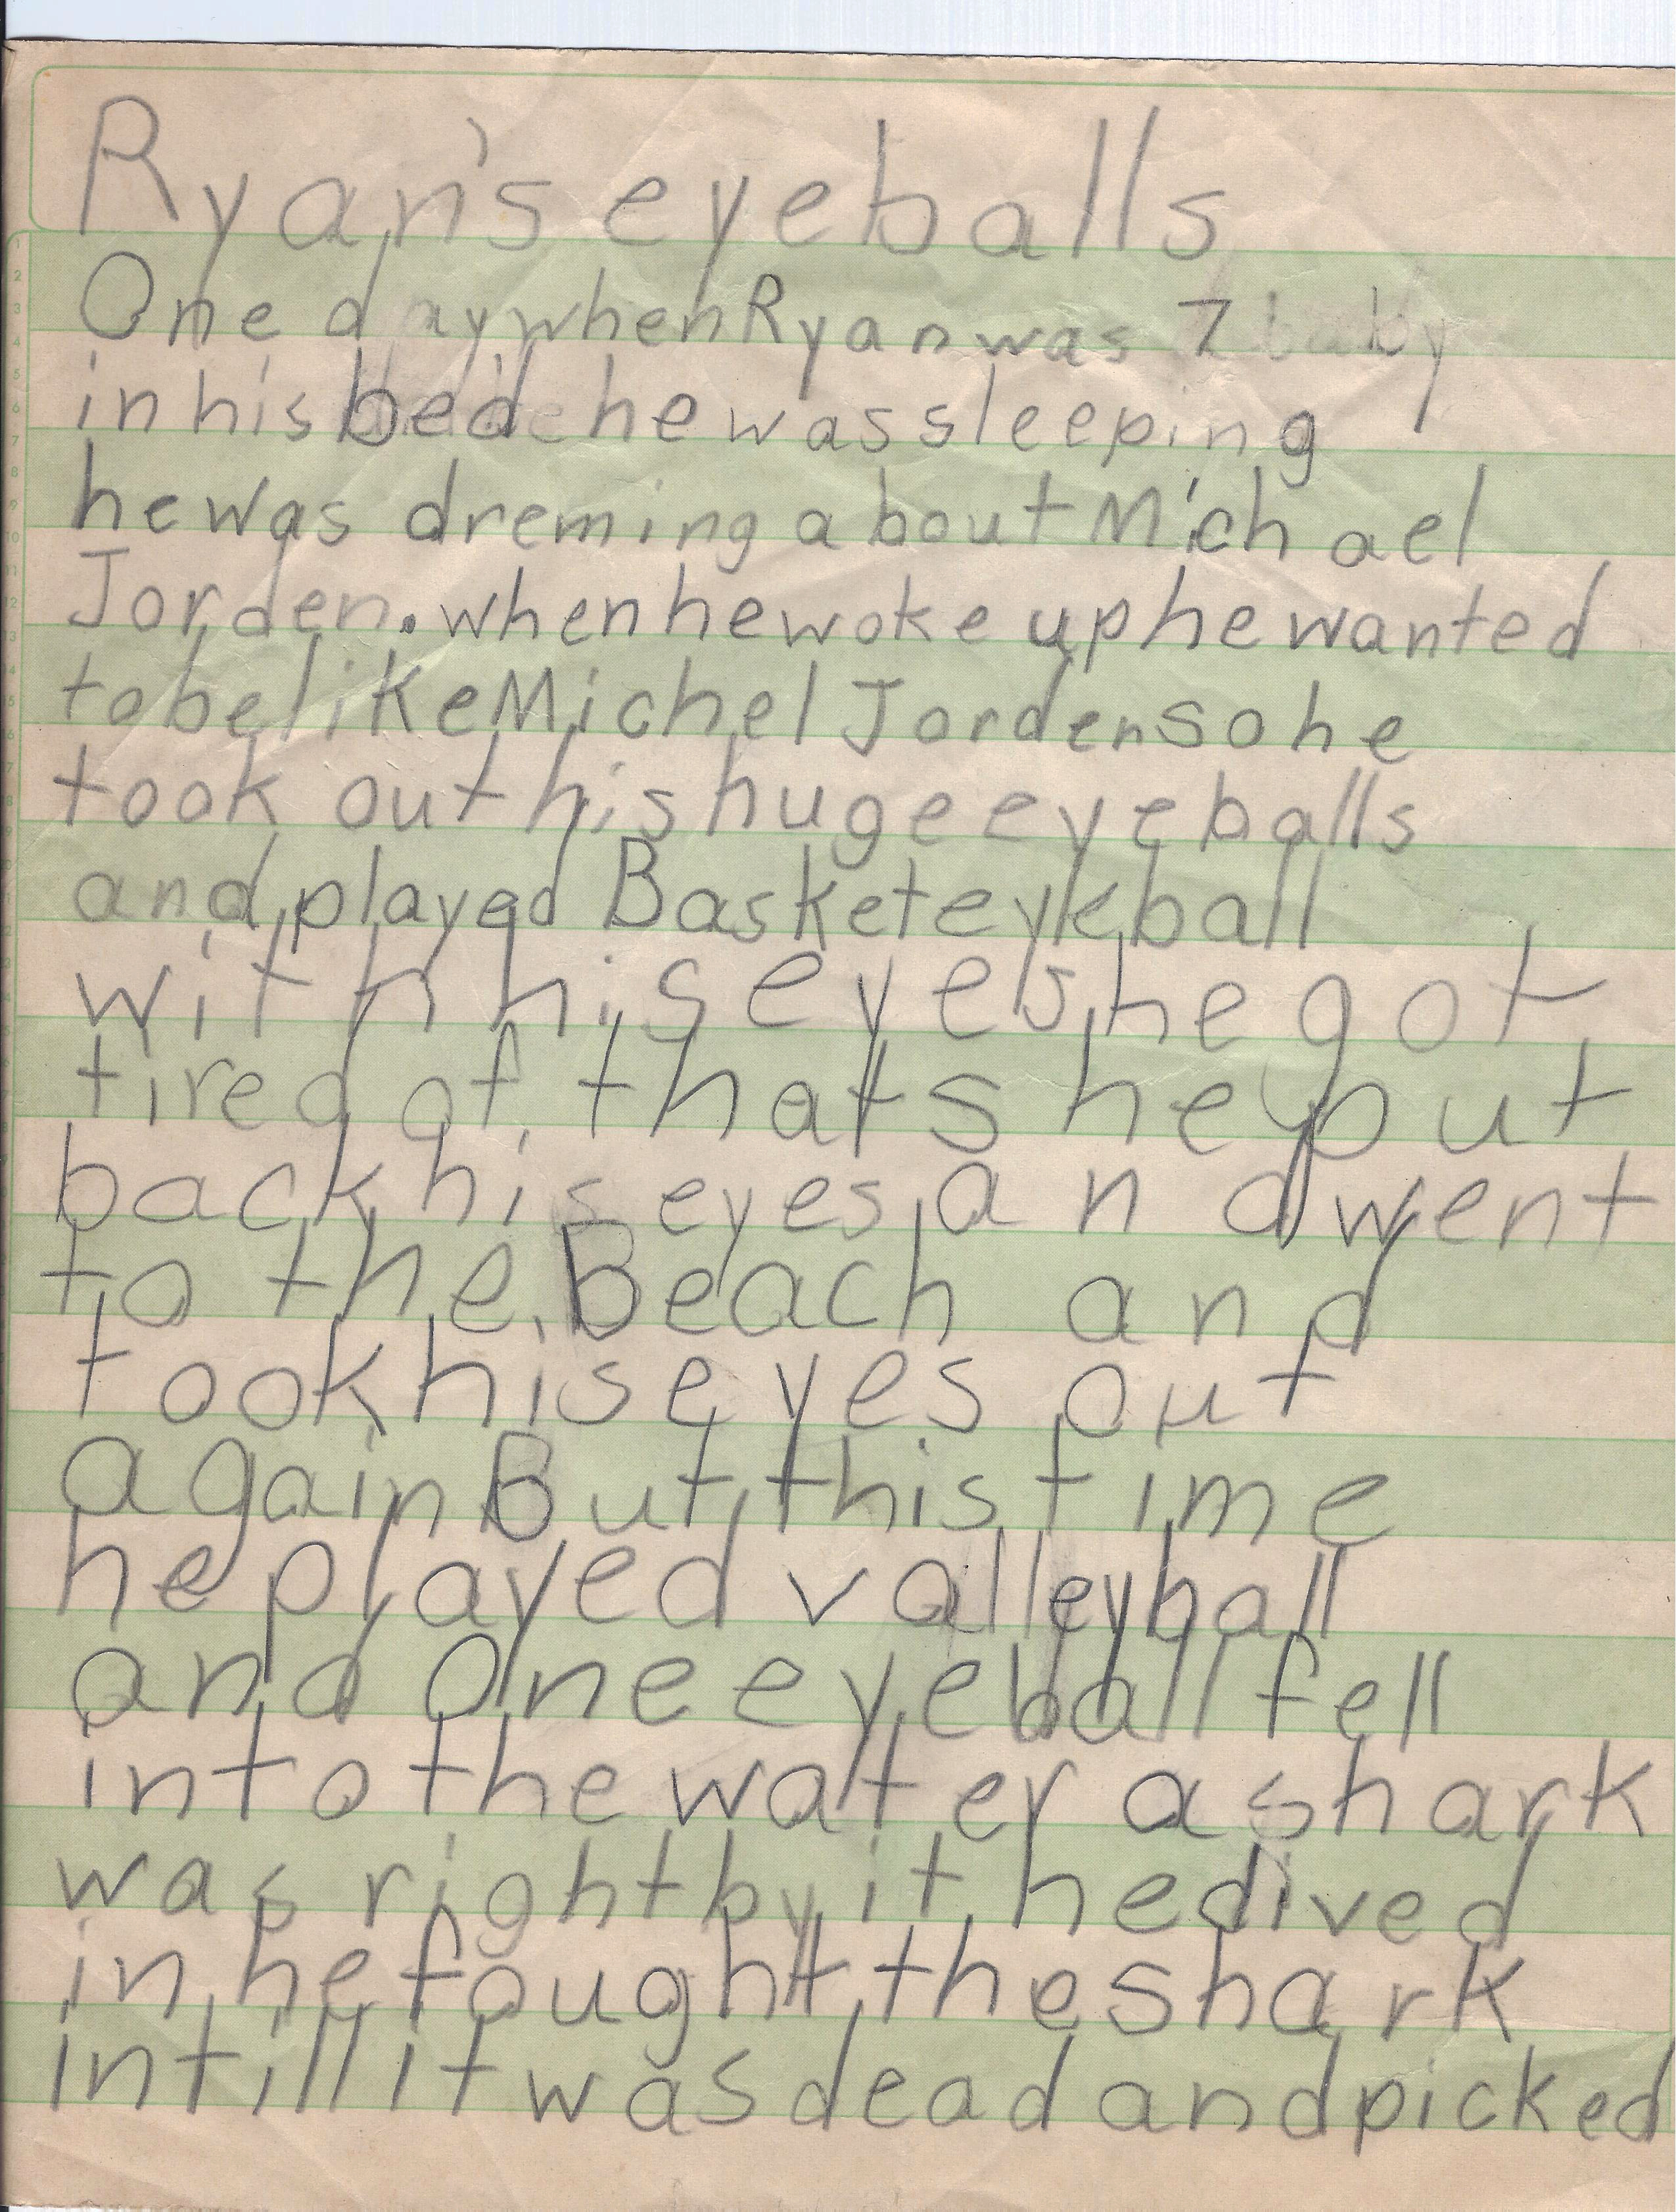 Ryan's eyeballs
One day when Ryan was 7
in his bed he was sleeping
he was dreming about Michael
Jorden. when he woke up he wanted
to be like Michel Jorden so he
took out his huge eyeballs
and played Basketeyeball
with his eyes he got
tired of that s he put
back his eyes and went
to the Beach and
took his eyes out
again But this time
he played valleyball
and One eyeball fell
into the water a shark
was right by it he dived
in he fought the shark
intill it was dead and picked